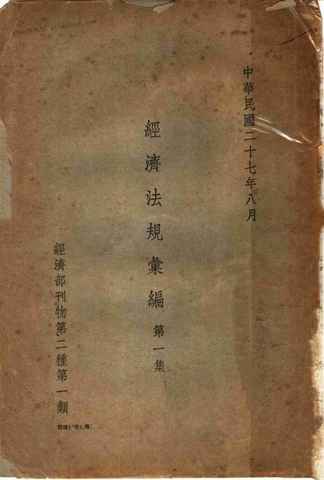 中華民國二十七年八月
經濟法規彙編 第一集
經濟部刊物第二種第一類